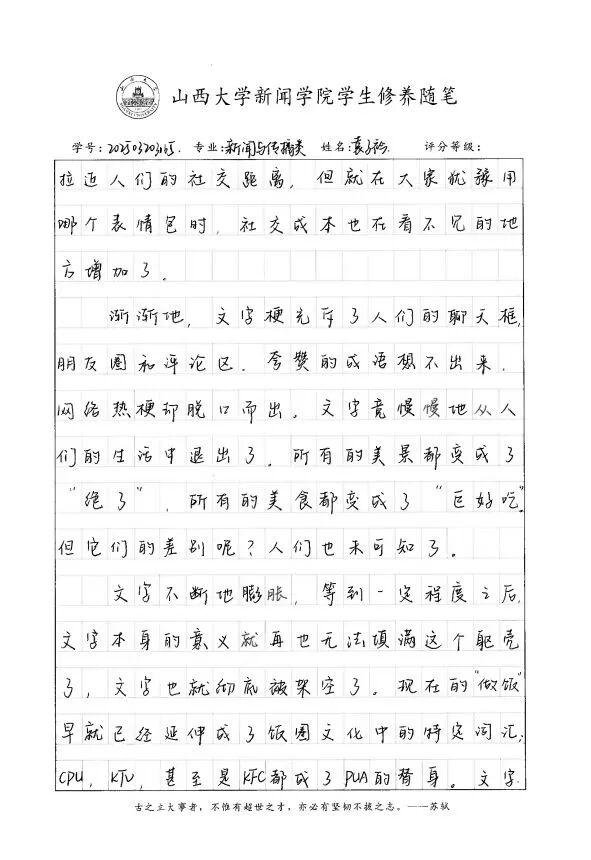 山西大学新闻学院学生修养随笔
学号：202503203165. 专业：新闻与传播类 姓名：袁子衿 评分等级：
拉近人们的社交距离，但就在大家犹豫用
哪个表情包时，社交成本也在看不见的地
方增加了。
渐渐地，文字梗充斥了人们的聊天框，
朋友圈和评论区，夸赞的成语想不出来，
网络热梗却脱口而出，文字竟慢慢地从人
们的生活中退出了。所有的美景都变成了
“绝了”，所有的美食都变成了“巨好吃”。
但它们的差别呢？人们也未可知了。
文字不断地膨胀，等到一定程度之后，
文字本身的意义就再也无法填满这个躯壳
了，文字也就彻底被架空了。现在的“做饭”
早就已经延伸成了饭圈文化中的特定词汇；
CPU，KTV，甚至是KFC都成了PUA的替身。文字
古之立大事者，不惟有超世之才，亦必有坚韧不拔之志。——苏轼